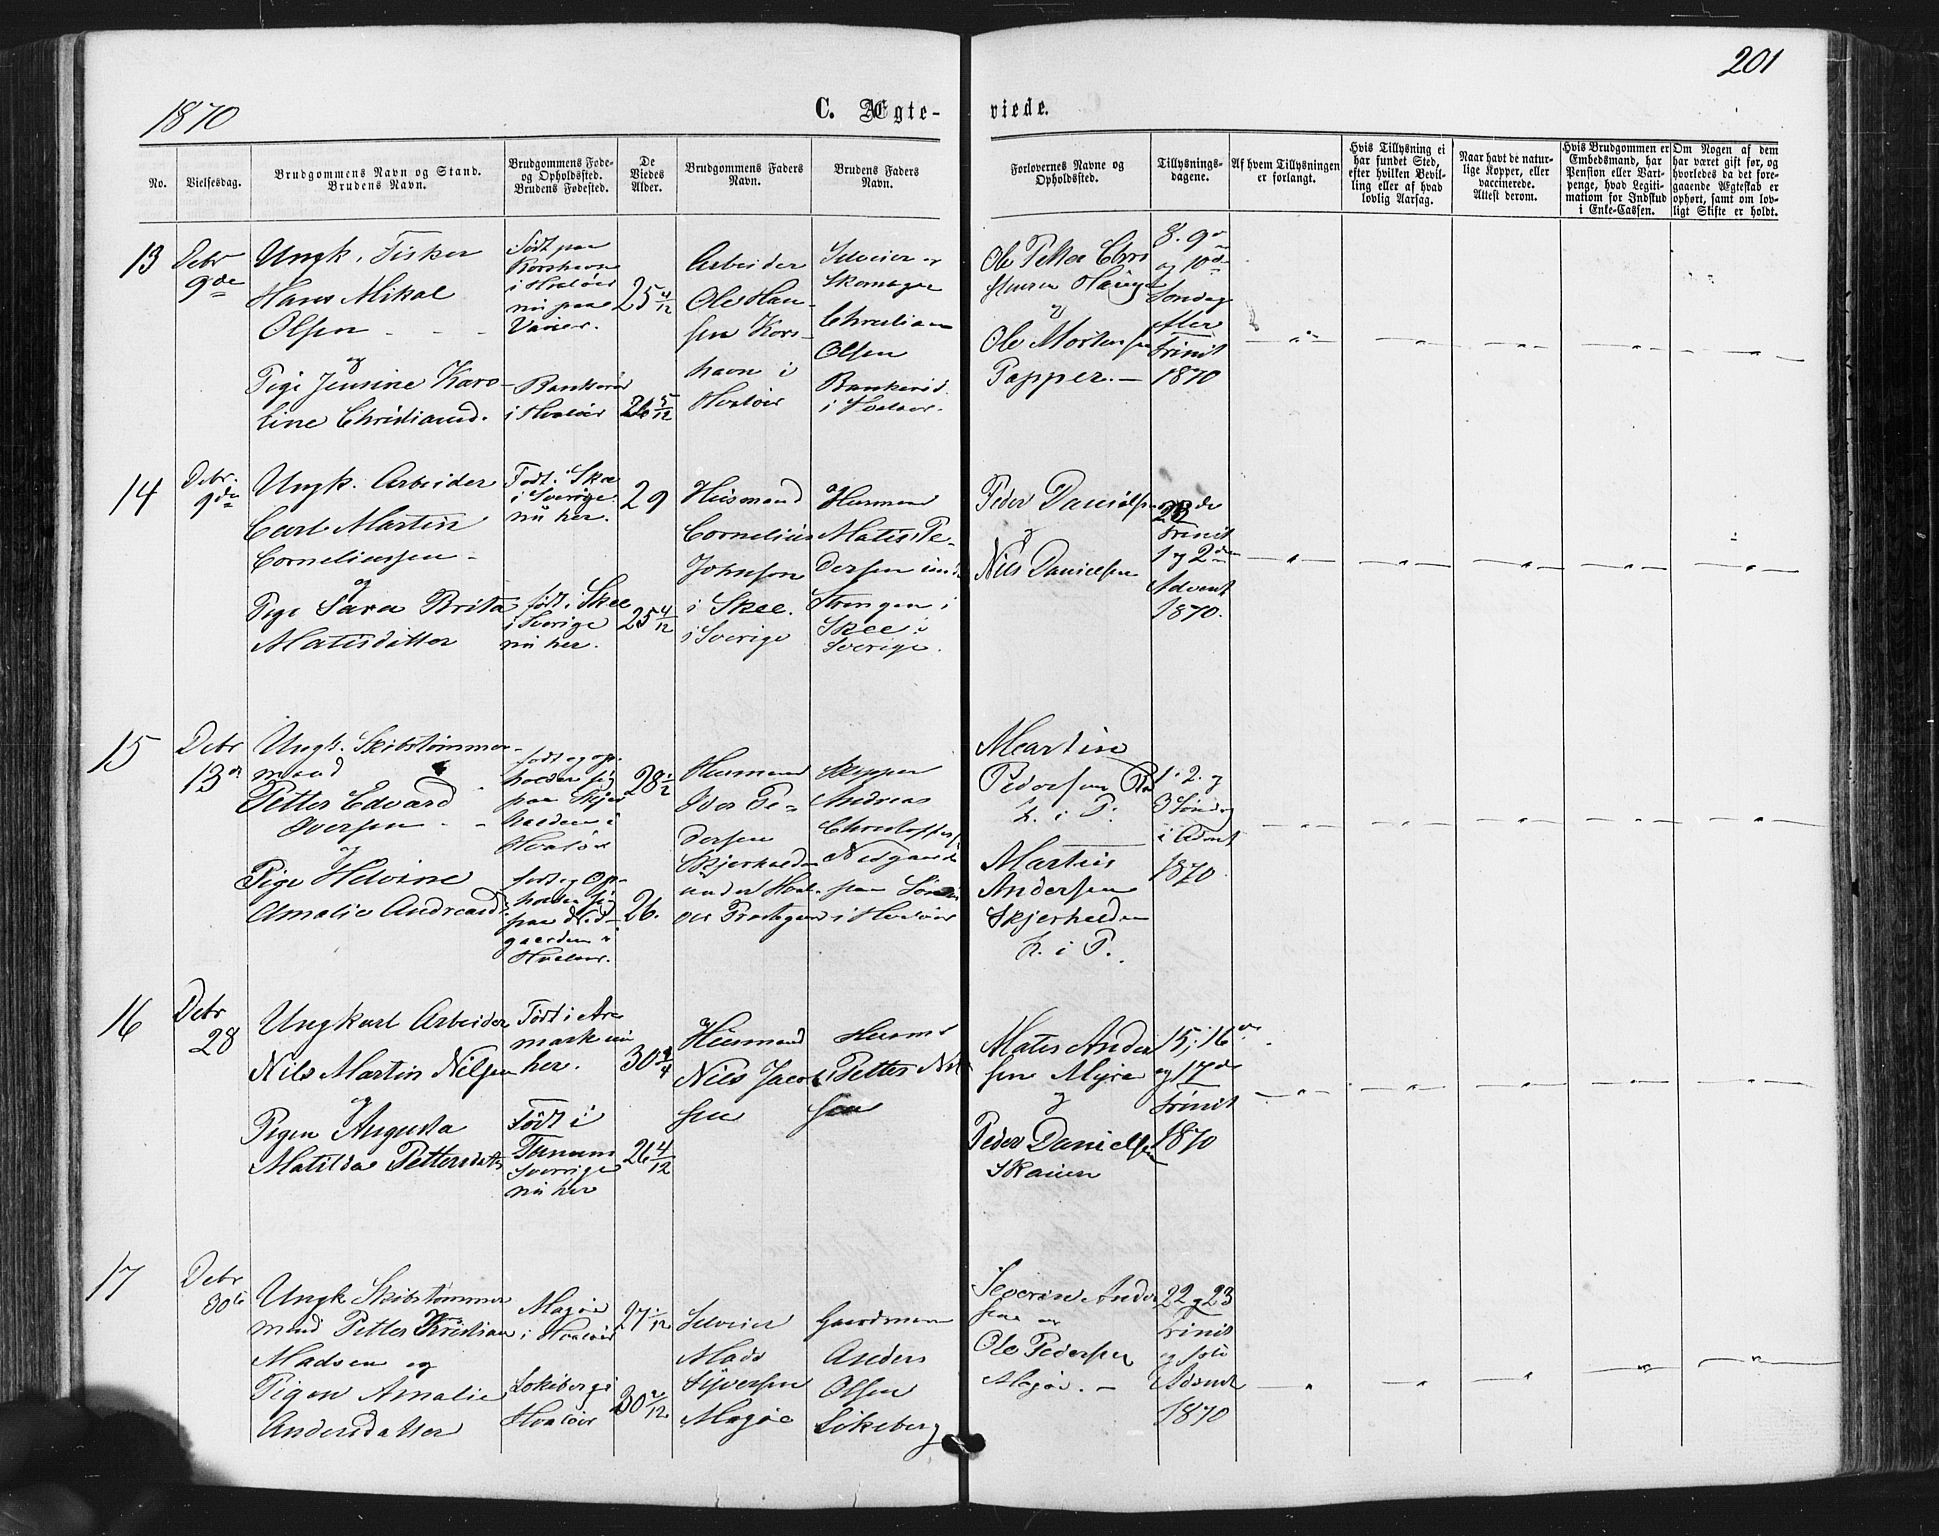 201
1870
C. Ægte-
viede.
No.
Vielsesdag.
Brudgommens Navn og Stand.
Brudens Navn.
Brudgommens Føde-
og Opholdssted.
Brudens Fødested.
De
Viedes
Alder.
Brudgommens Faders
Navn.
Brudens Faders
Navn.
Forlovernes Navne og
Opholdssted.
Tillysnings-
dagene.
Af hvem Tillysningen
er forlangt.
Hvis Tillysning ei
har fundet Sted,
efter hvilken Bevil-
ling eller af hvad
lovlig Aarsag.
Naar havt de natur-
lige Kopper, eller
vaccinerede.
Attest derom.
Hvis Brudgommen er
Embedsmand, har
Pension eller Vart-
penge, hvad Legiti-
mation for Indskud
i Enke-Cassen.
Om Nogen af dem
har været gift før, og
hvorledes da det fore-
gaaende Ægteskab er
ophørt, samt om lov-
ligt Skifte er holdt.
13
Debr
9de
Ungk. Fisker
Hans Mikal
Olsen
og
Pige Jensine Karo-
line Christiansd.
Født paa
Korshavn
i Hvaløer
nu paa
i Hvaløer
25 4/12
26 5/12
Arbeider
Ole Han-
sen Kors-
havn i
Hvaløer
Selveier og
Skomager
Christian
Olsen
i Hvaløer.
Ole Petter Chri
stensen
og
Ole Mortensen
Papper.
8. 9de
og 10de
Søndag
efter
Trinit
1870
14
Debr.
9de
Ungk. Arbeider
Carl Martin
Corneliussen
og
Pige Sara Brita
Matisdatter
Født i Skee
i Sverige
nu her.
født i Skee
i Sverige
nu her.
29
25 4/12
Husmand
Cornelius
Johnson
i Skee.
i Sverige
Husmand
Matis Pe-
dersen
Strengen i
Skee i
Sverige.
Peder Danielsen
og
Nils Danielsen
Trinit
1 og 2den
Advent
1870.
15
Debr
13de
Ungk. Skibstømmer-
mand
Petter Edvard
Iversen
og
Pige Helvine
Amalie Andreasd.
født og op-
holder sig
paa Skjær
halden i
Hvaløer
født og Op-
holder sig
paa Ned-
gaarden i
Hvaløer.
28 1/2
26.
Husmand
Iver Pe-
dersen
Skjerhalden
under Hval-
øer Prestegaard
Skipper
Andreas
Christoffers
Nedgaarden
i Hvaløer
Martin
Pedersen
h. i P.
Martin
Andersen
Skjerhalden
h. i P.
1. 2. og
3 Søndag
i Advent
1870.
16
Debr
28
Ungkarl Arbeider
Nils Martin Nilsen
og
Pigen Augusta
Matilda Pettersdatter
Født i Are
mark nu
her.
Født i
Tanum
Sverrige
nu her
26 4/12
Husmand
Nils Jacob
sen
Husm
Petter Nil
sen
Mats Ander
sen Myra
og
Peder Danielsen
Skauen
15, 16de
og 17de
Trinit
1870
17
Debr
30te
Ungk Skibstømmer
mand Petter Kristian
Madsen og
Pigen Amalie
Andersdatter
Magøe
i Hvaløer
Løkeberg i
Hvaløer
27 1/12
30 2/12
Selveier
Mads
Syversen
Magøe
Gaardmand
Anders
Olsen
Løkeberg
Severin Ander
sen og
Ole Pedersen
Magøe.
22 og 23
Trinit
og 1ste
Advent
1870